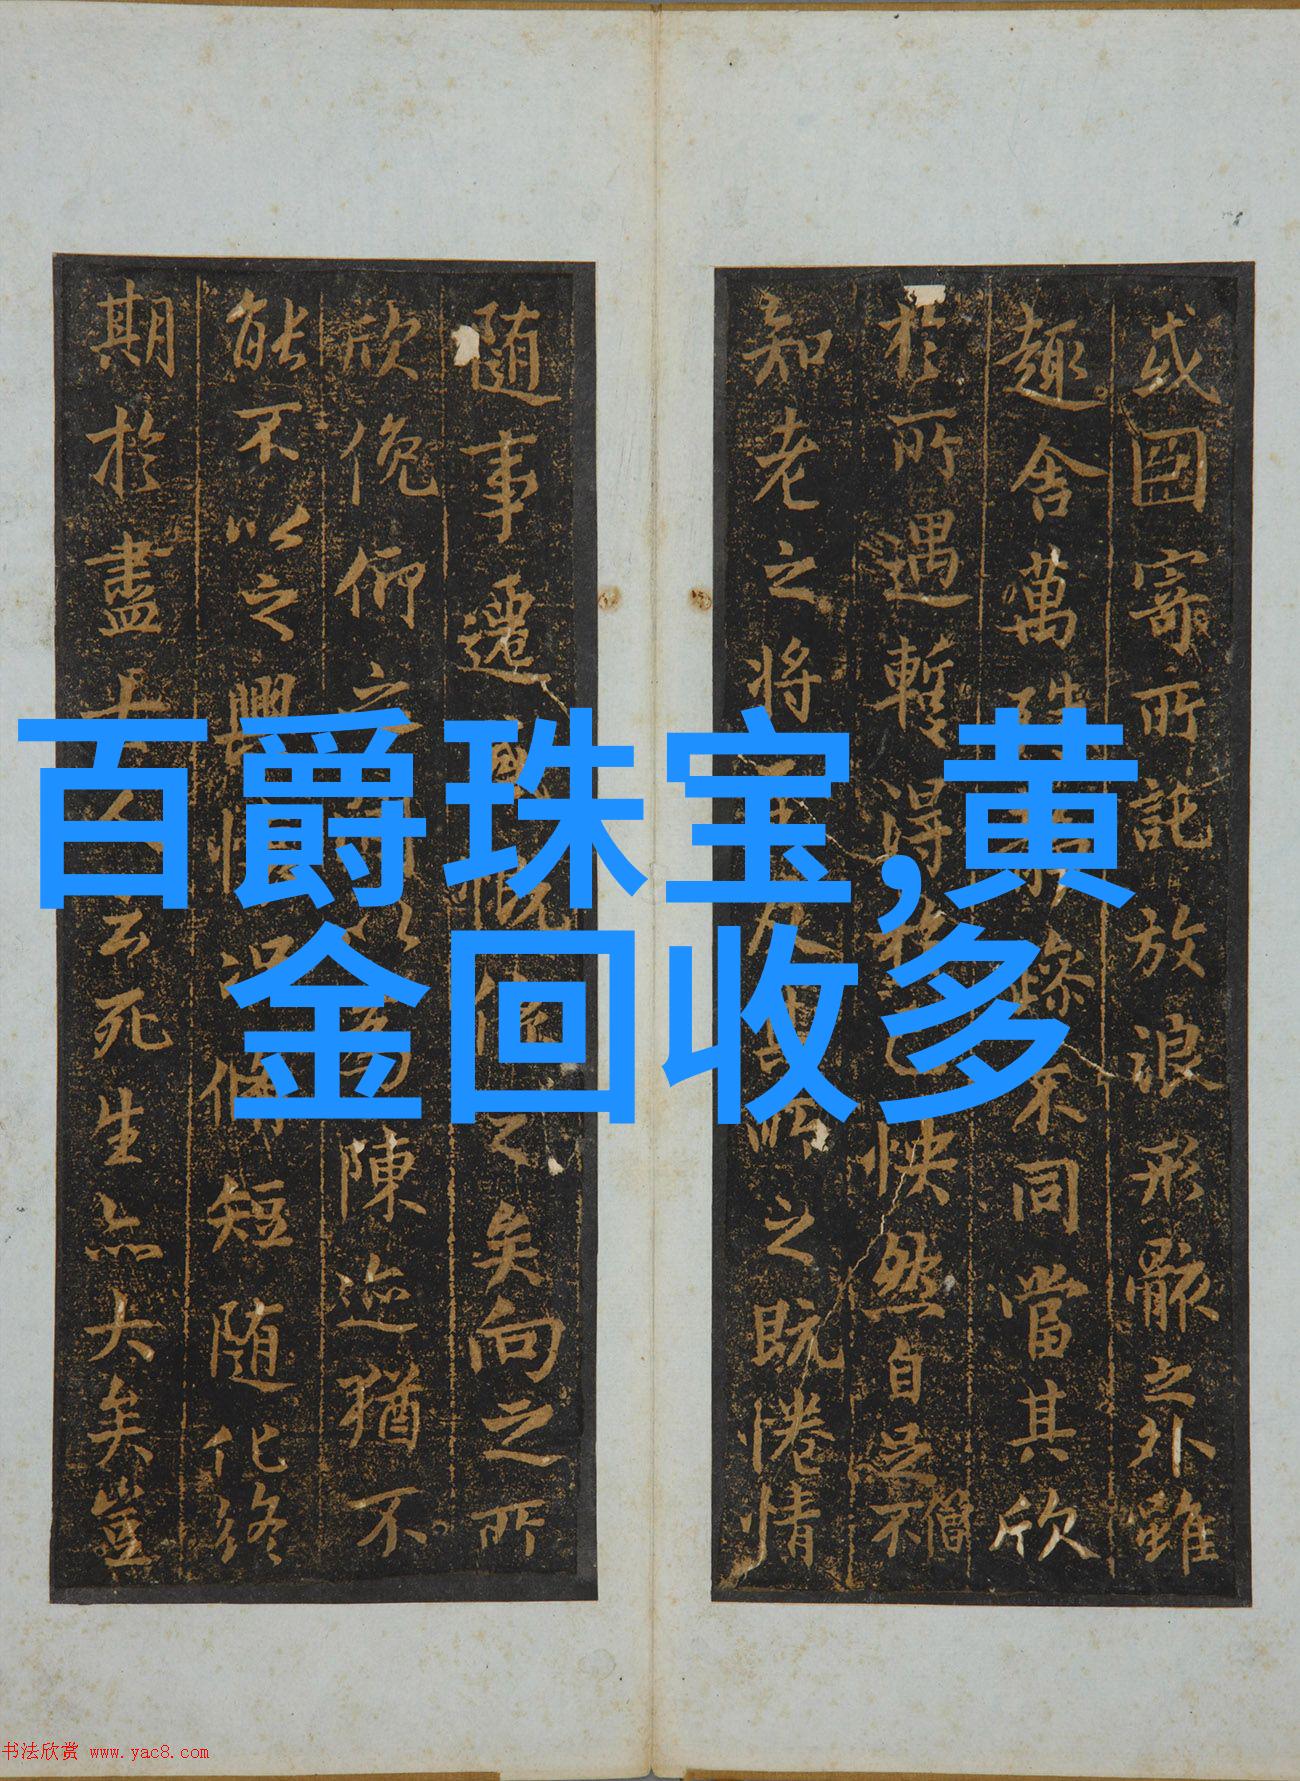 百爵珠宝,黄
金回收多
或因寄所託放浪形骸之外雖
趣舍萬殊躁不同當其欣
於所遇暫得怏然自足不
僧
知老之將所之既惓情
随事遷慨係之矣向之所
欣俛仰之陳迹猶不
能不以之興短随化終
期於盡古人云死生亦大矣豈
书法欣赏 www.yac8.com